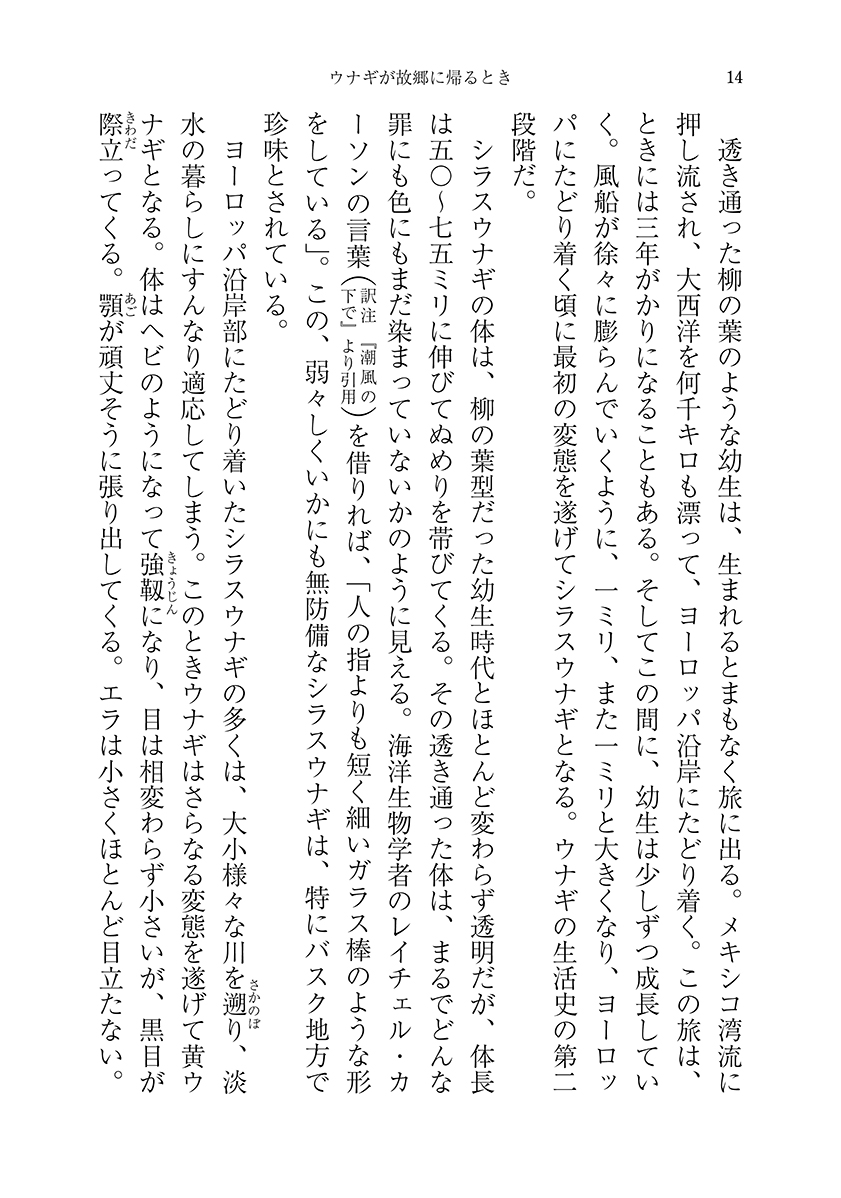 ウナギが故郷に帰るとき
14
透き通った柳の葉のような幼生は、生まれるとまもなく旅に出る。メキシコ湾流に
押し流され、大西洋を何千キロも漂って、ヨーロッパ沿岸にたどり着く。この旅は、
ときには三年がかりになることもある。そしてこの間に、幼生は少しずつ成長してい
く。風船が徐々に膨らんでいくように、一ミリ、また一ミリと大きくなり、ヨーロッ
パにたどり着く頃に最初の変態を遂げてシラスウナギとなる。ウナギの生活史の第二
段階だ。
シラスウナギの体は、柳の葉型だった幼生時代とほとんど変わらず透明だが、体長
は五〇～七五ミリに伸びてぬめりを帯びてくる。その透き通った体は、まるでどんな
罪にも色にもまだ染まっていないかのように見える。海洋生物学者のレイチェル・カ
ーソンの言葉（訳注 『潮風の下で』より引用）を借りれば、「人の指よりも短く細いガラス棒のような形
をしている」。この、弱々しくいかにも無防備なシラスウナギは、特にバスク地方で
珍味とされている。
ヨーロッパ沿岸部にたどり着いたシラスウナギの多くは、大小様々な川を遡り、淡
さかのぼ
水の暮らしにすんなり適応してしまう。このときウナギはさらなる変態を遂げて黄ウ
ナギとなる。体はヘビのようになって強靱になり、目は相変わらず小さいが、黒目が
きょうじん
際立ってくる。顎が頑丈そうに張り出してくる。エラは小さくほとんど目立たない。
きわだ
あご